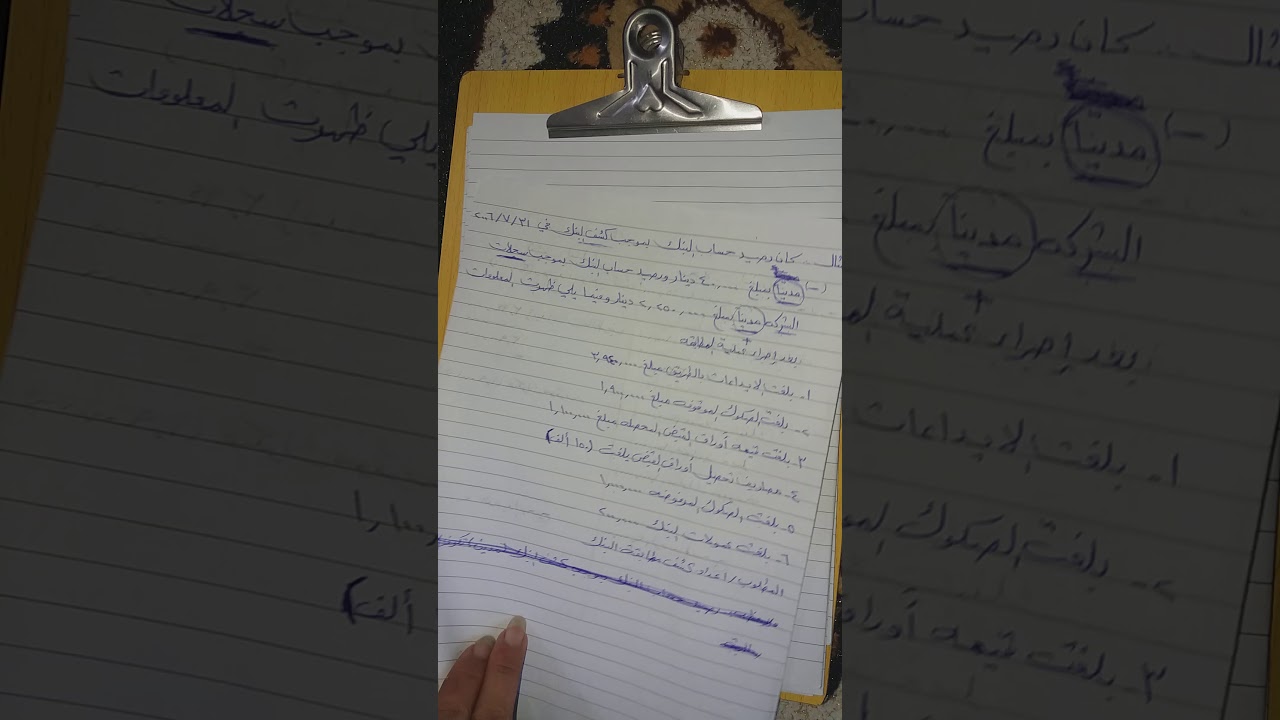 مثال .. كان رصيد حساب البنك بموجب كشف البنك في ٢٠٠٦/٧/٣١
(-) مدينا بمبلغ ٤٠٠,٠٠٠ دينار ورصيد حساب البنك بموجب سجلات
الشركه مدينا بمبلغ ٢,٢٥٠,٠٠٠ دينار وفيما يلي ظهرت المعلومات
+
بعد إجراء عملية المطابقه
١- بلغت الايداعات بالطريق مبلغ
٢- بلغت الصكوك الموقوفه مبلغ ١,٩٠٠,٠٠٠
٣- بلغت قيمه أوراق القبض المحصله مبلغ ١,١٠٠,٠٠٠
٤- مصاريف تحصيل أوراق القبض بلغت (١٥٠ ألف)
٥- بلغت الصكوك المرفوضه ١,٠٠٠,٠٠٠
٦- بلغت عمولات البنك ٢٠٠,٠٠٠
المطلوب / اعداد كشف مطابقة البنك